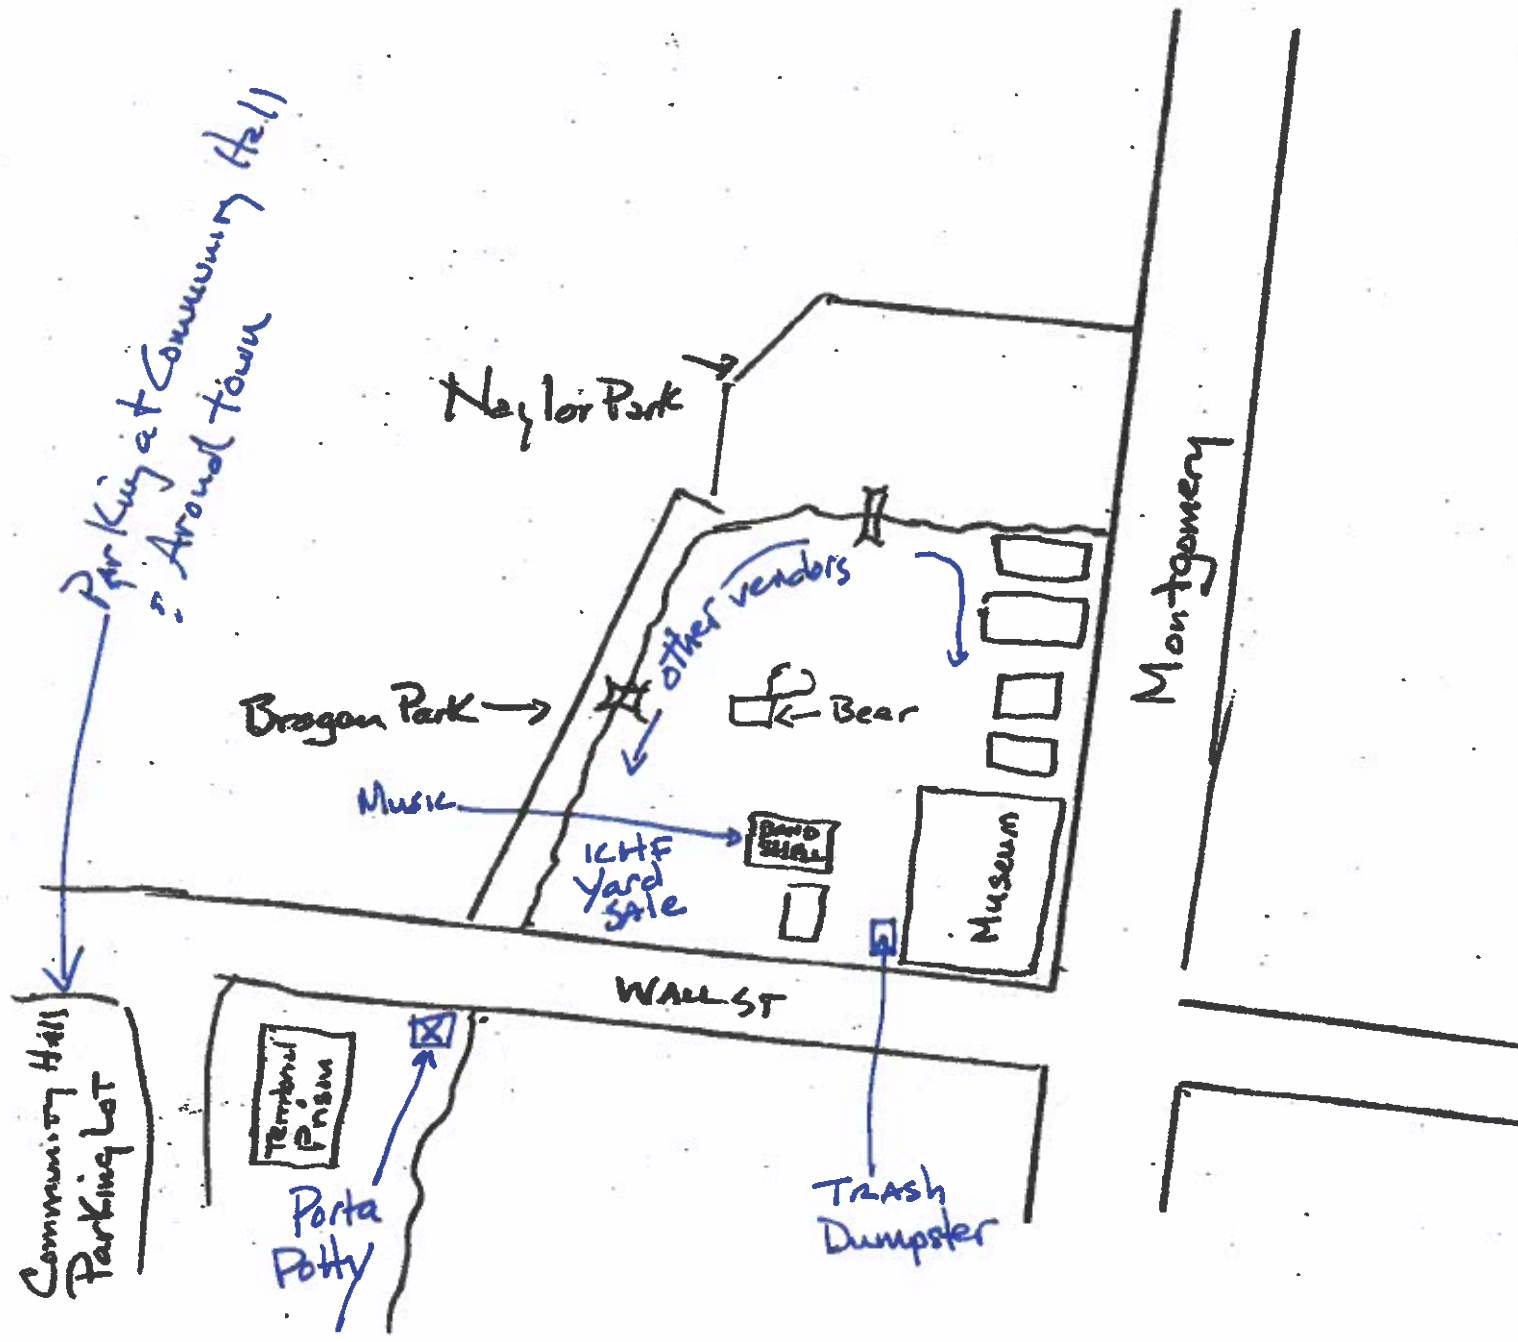 Parking at Community Hall
& Around town
Naylor Park
Montgomery
other vendors
Brogan Park
Bear
Music
BAND
SHELL
ICHF
Yard
SALE
Museum
WALL ST
Community Hall
Parking Lot
Territorial
Prison
Porta
Potty
TRASH
Dumpster